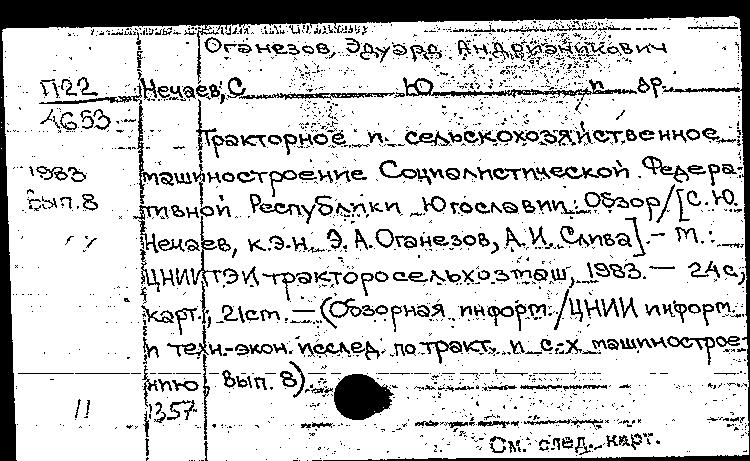 Оганезов, Эдуард Андрианикович
П22 Нечаев, С Ю и др.
4653
Тракторное и сельскохозяйственное
1983 машиностроение Социалистической Федера-
Вып.8 тивной Республики Югославии: Обзор/[С.Ю.
Нечаев, к.э.н. Э.А.Оганезов, А.И. Слива].- М.:
ЦНИИТЭИ тракторосельхозмаш, 1983.- 24с,
карт.; 21см.-(Обзорная информ./ЦНИИ информ
и техн.-экон. исслед. по тракт. и с.-х машинострое-
нию; Вып. 8).
11 1357
См. след. карт.